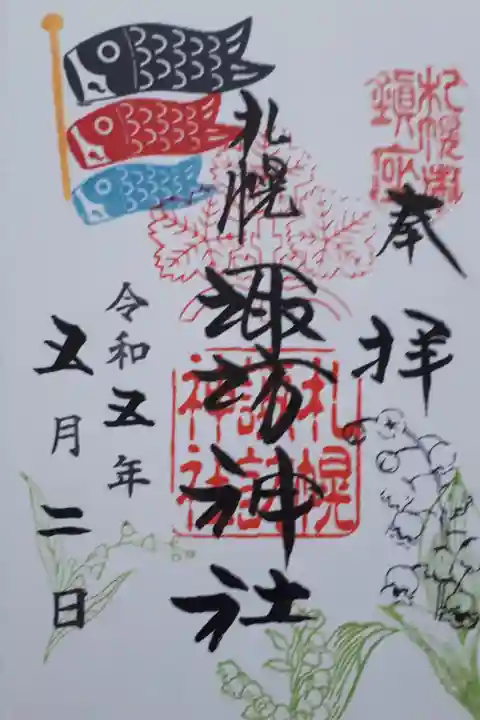 札幌市
鎮座
奉拝
札幌
諏訪神社
札幌
諏訪
神社
令和五年
五月二日